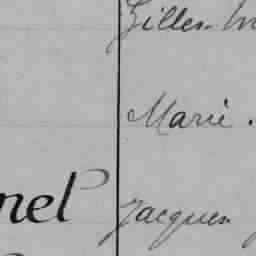 Gilles
Marie
nel Jacques